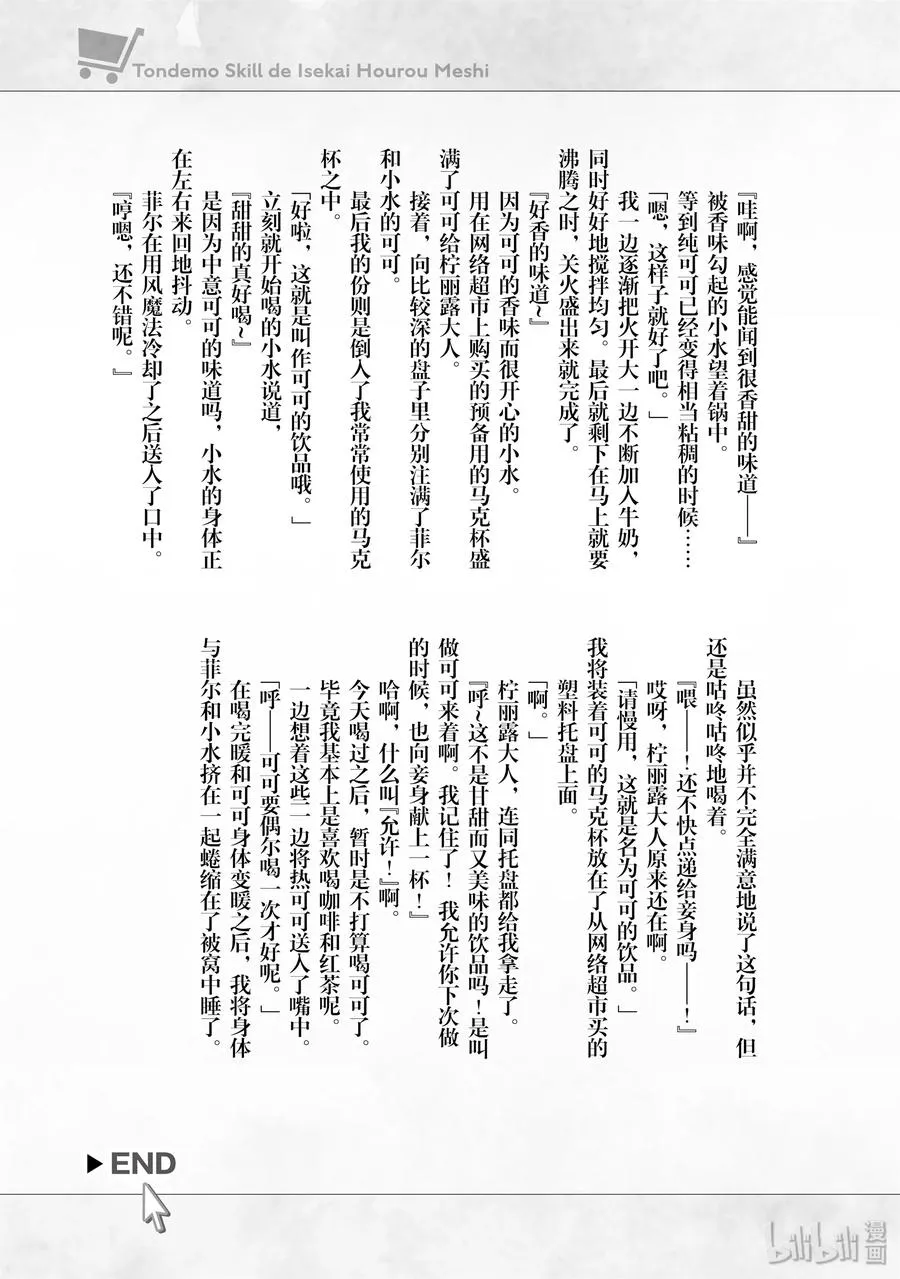 Tondemo Skill de Isekai Hourou Meshi
『哇啊，感觉能闻到很香甜的味道——』
被香味勾起的小水望着锅中。
等到纯可可已经变得相当粘稠的时候……
「嗯，这样子就好了吧。」
我一边逐渐把火开大一边不断加入牛奶，
同时好好地搅拌均匀。最后就剩下在马上就要
沸腾之时，关火盛出来就完成了。
『好香的味道~』
因为可可的香味而很开心的小水。
用在网络超市上购买的预备用的马克杯盛
满了可可给柠丽露大人。
接着，向比较深的盘子里分别注满了菲尔
和小水的可可。
最后我的份则是倒入了我常常使用的马克
杯之中。
「好啦，这就是叫作可可的饮品哦。」
立刻就开始喝的小水说道，
『甜甜的真好喝~』
是因为中意可可的味道吗，小水的身体正
在左右来回地抖动。
菲尔在用风魔法冷却了之后送入了口中。
『哼嗯，还不错呢。』
虽然似乎并不完全满意地说了这句话，但
还是咕咚咕咚地喝着。
『喂——！还不快点递给妾身吗——！』
哎呀，柠丽露大人原来还在啊。
「请慢用，这就是名为可可的饮品。」
我将装着可可的马克杯放在了从网络超市买的
塑料托盘上面。
「啊。」
柠丽露大人，连同托盘都给我拿走了。
『呼~这不是甘甜而又美味的饮品吗！是叫
做可可来着啊。我记住了！我允许你下次做
的时候，也向妾身献上一杯！』
哈啊，什么叫『允许！』啊。
今天喝过之后，暂时是不打算喝可可了。
毕竟我基本上是喜欢喝咖啡和红茶呢。
一边想着这些一边将热可可送入了嘴中。
「呼——可可要偶尔喝一次才好呢。」
在喝完暖和可可身体变暖之后，我将身体
与菲尔和小水挤在一起蜷缩在了被窝中睡了。
END
bilibili 漫画